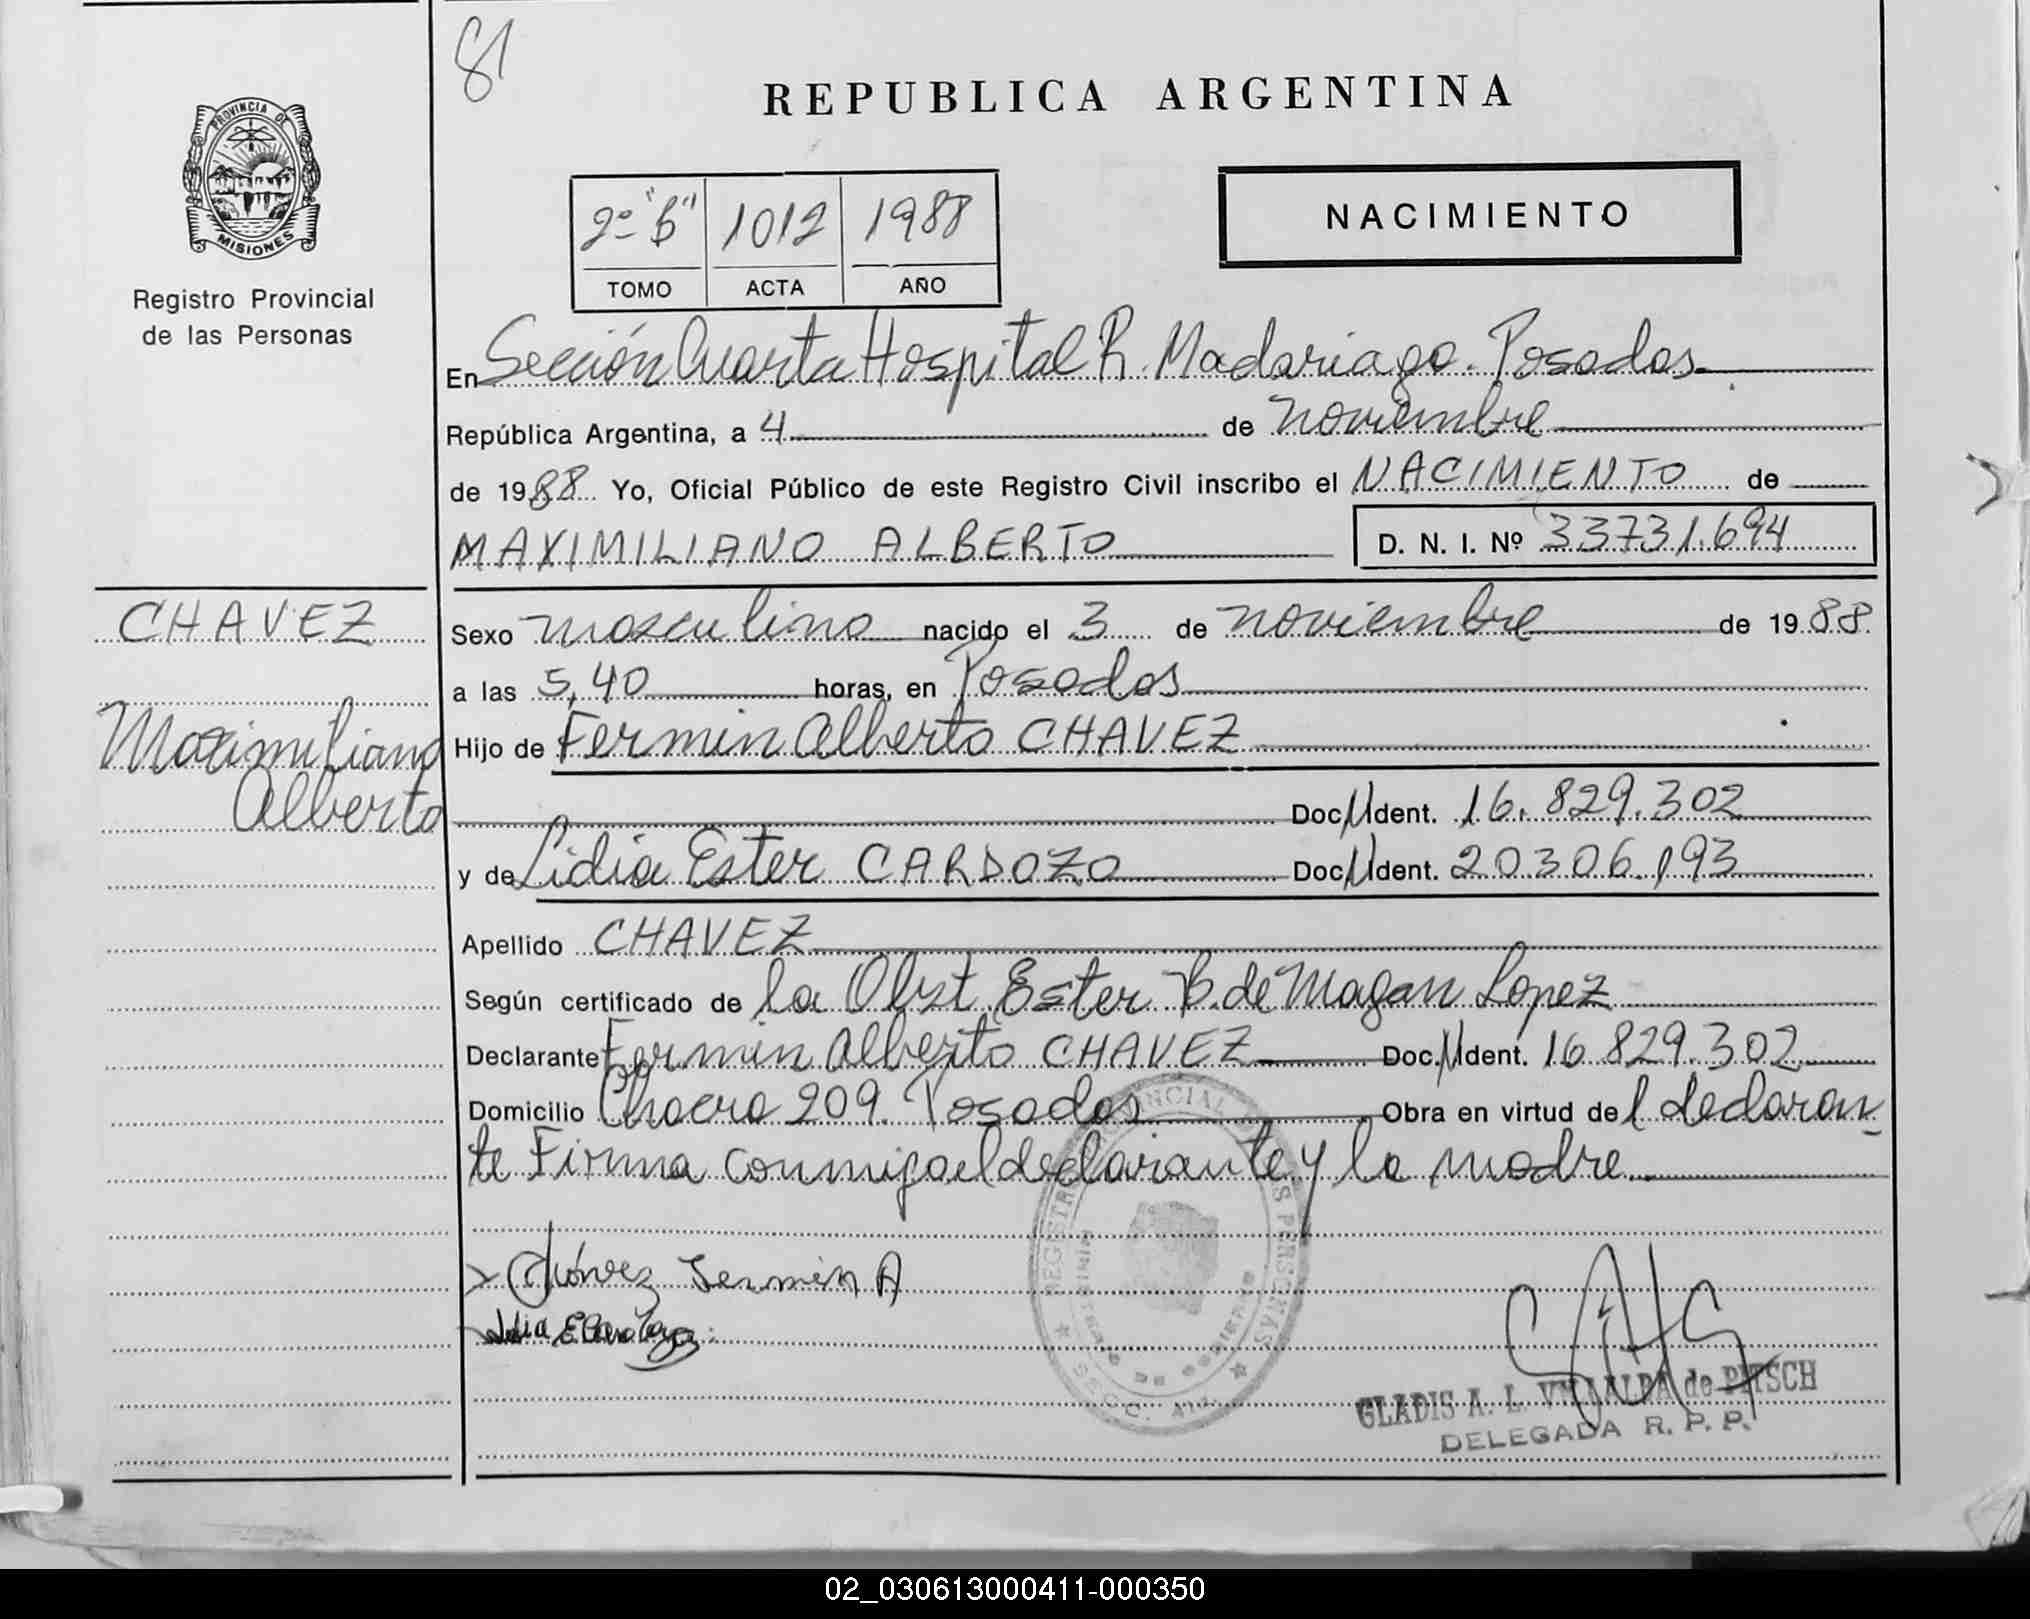 81
REPUBLICA ARGENTINA
PROVINCIA DE
MISIONES
Registro Provincial
de las Personas
2º "B" 1012 1988
TOMO ACTA AÑO
NACIMIENTO
En Sección Cuarta Hospital R. Madariaga. Posadas
República Argentina, a 4 de noviembre
de 1988 Yo, Oficial Público de este Registro Civil inscribo el NACIMIENTO de
MAXIMILIANO ALBERTO D. N. I. Nº 33731.694
CHAVEZ
Maximiliano
Alberto
Sexo masculino nacido el 3 de noviembre de 1988
a las 5,40 horas, en Posadas
Hijo de Fermin Alberto CHAVEZ
Doc. Ident. 16.829.302
y de Lidia Ester CARDOZO Doc. Ident. 20306.193
Apellido CHAVEZ
Según certificado de la Obst. Ester B. de Magan Lopez
Declarante Fermin Alberto CHAVEZ Doc. Ident. 16829.302
Domicilio Chacra 209. Posadas Obra en virtud del declaran
te Firma conmigo el declarante y la madre
Chávez Fermin A
Lidia E Cardozo
REGISTRO PROVINCIAL DE LAS PERSONAS
MINISTERIO DE GOBIERNO
SECC. 4ta.
GLADIS A. L. VILLALBA de PITSCH
DELEGADA R. P. P.
02_030613000411-000350